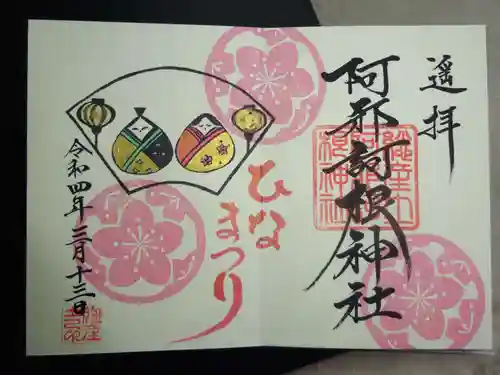 遥拝
阿郡訶根神社
ひな
まつり
令和四年三月十三日